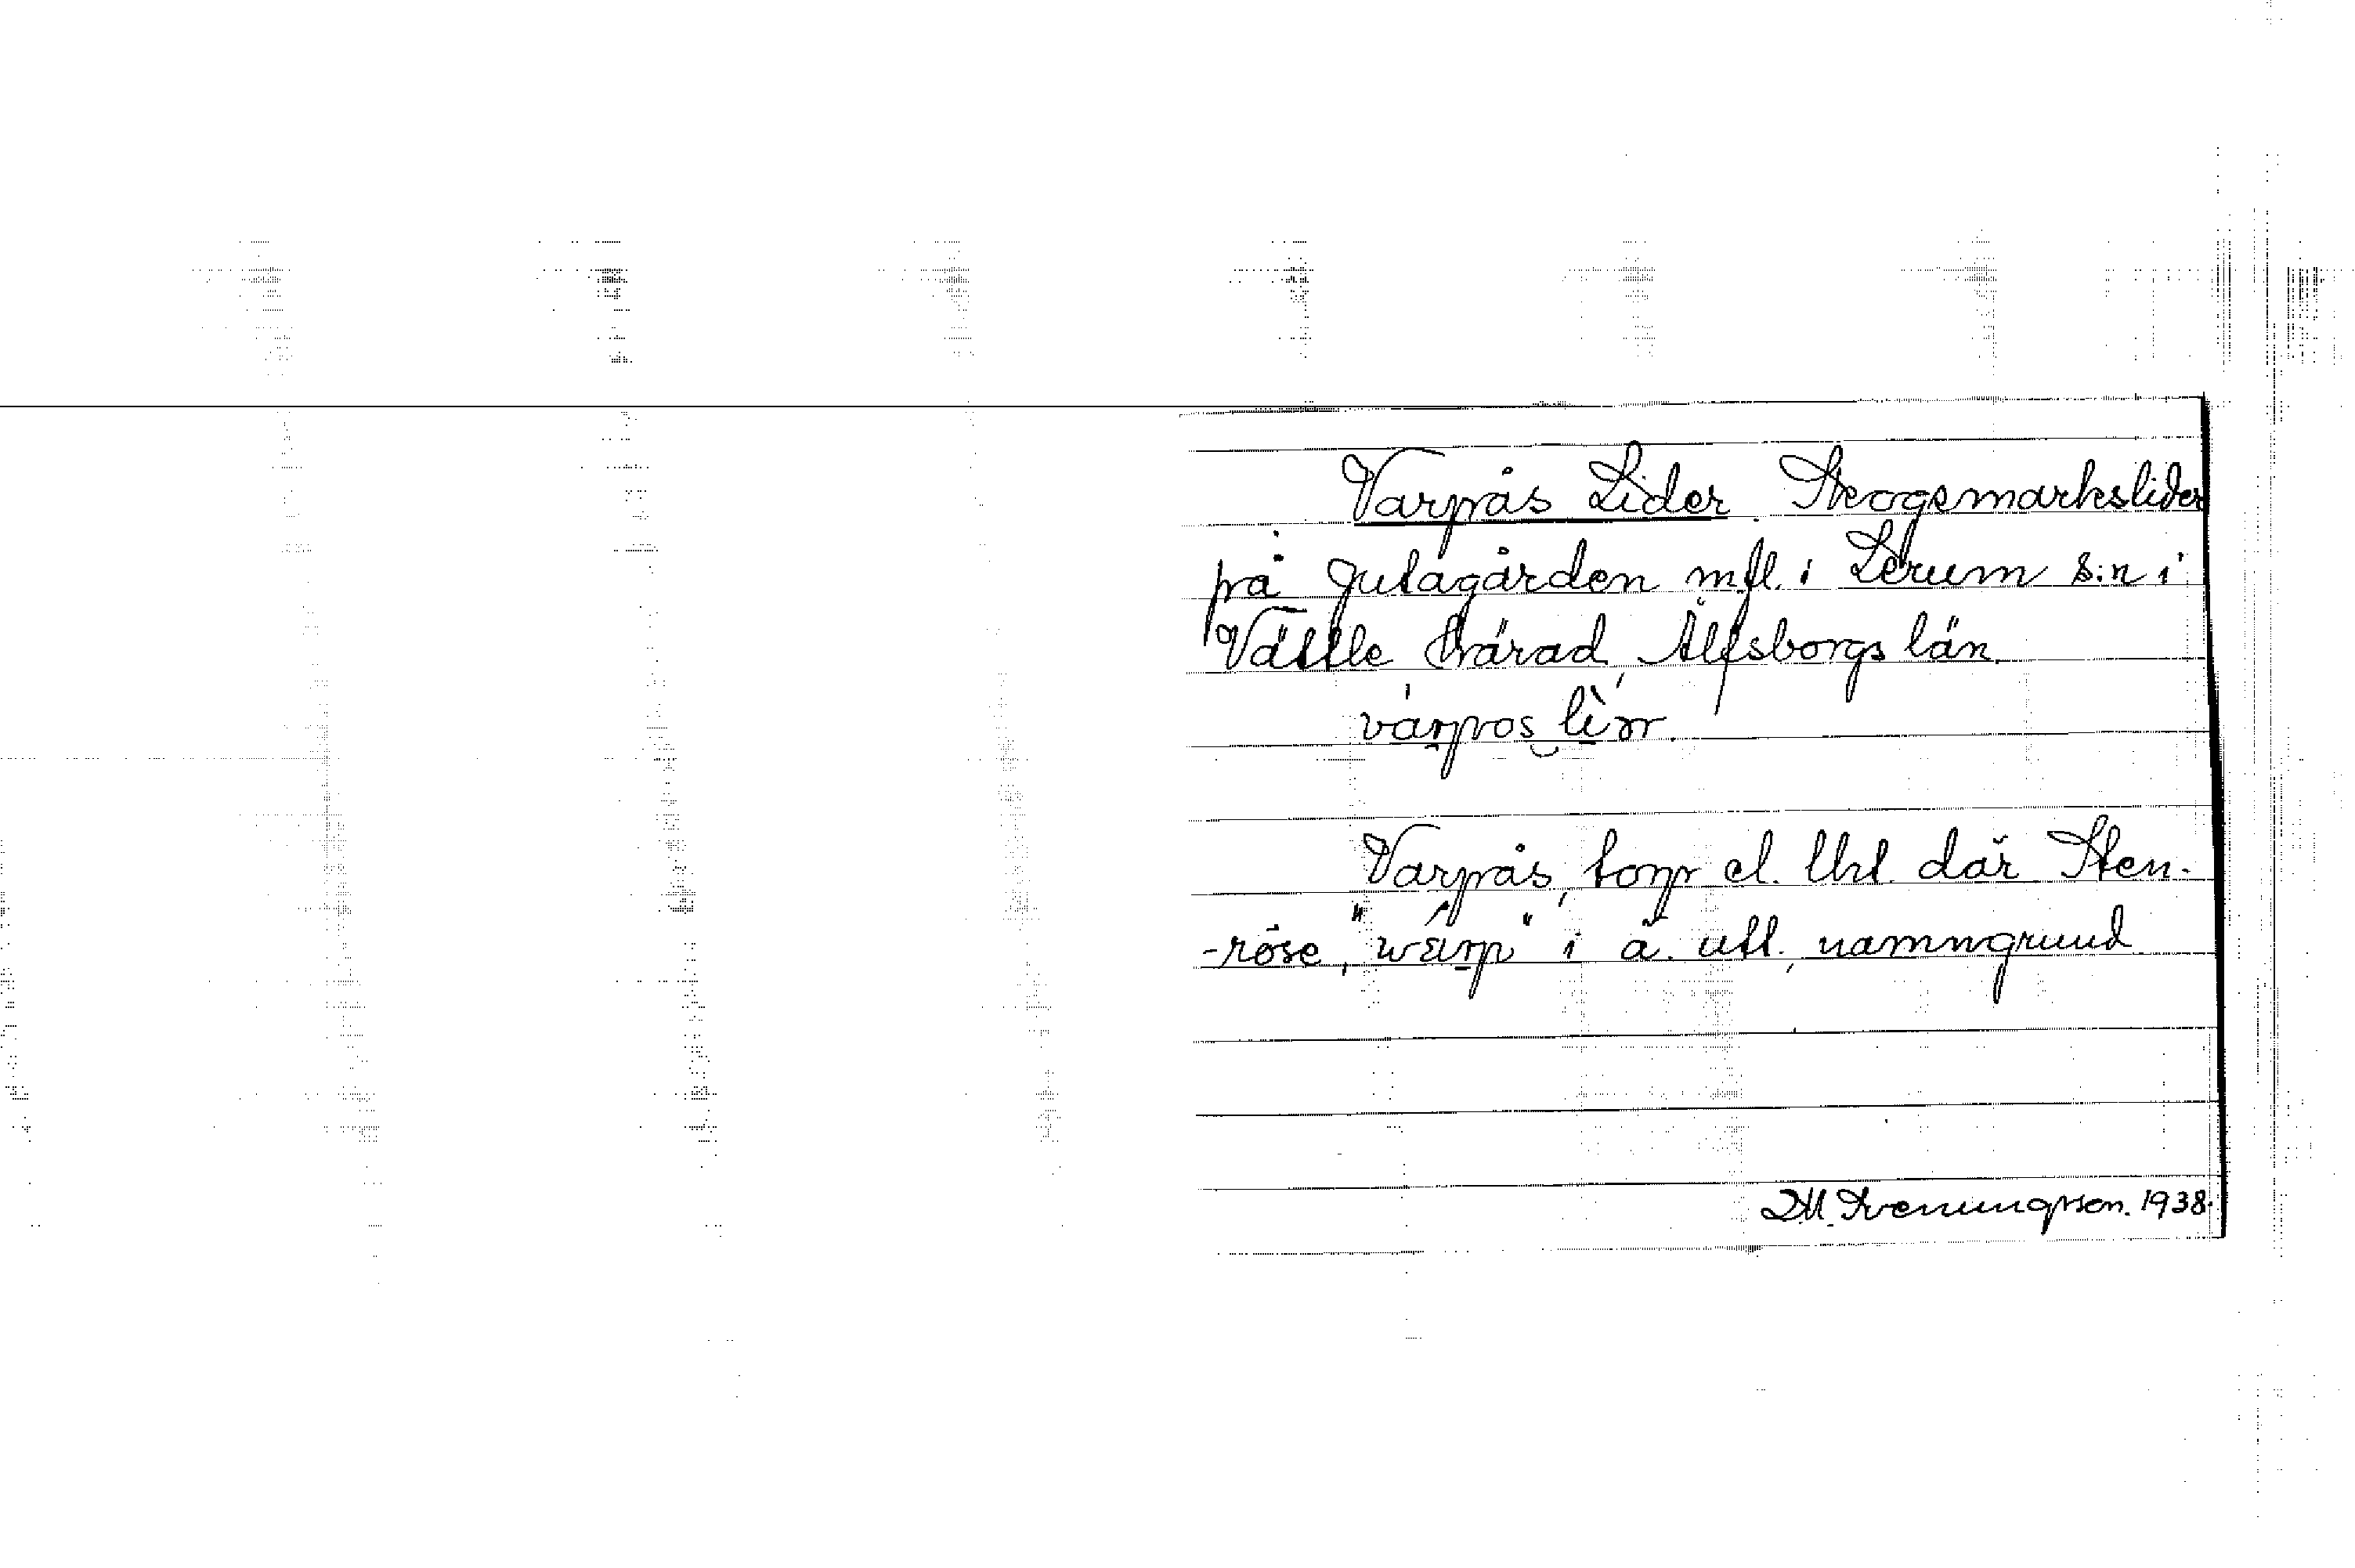 Varpås Lider. Skogsmarkslider
på Jutagården mfl. i Lerum s:n i
Vättle härad, Älfsborgs län.
várpos lìrr.
Varpås, torp el. lht. där Sten-
-röse, "warp" i ä. utt., namngrund
D.M. Svenungsson. 1938.